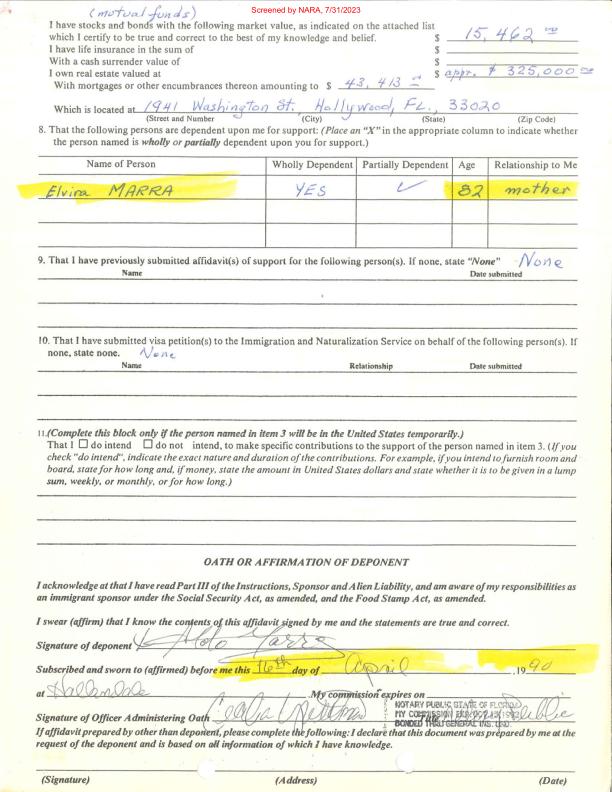 Screened by NARA, 7/31/2023
(mutual funds)
I have stocks and bonds with the following market value, as indicated on the attached list
which I certify to be true and correct to the best of my knowledge and belief. $ 15,462
I have life insurance in the sum of $
With a cash surrender value of $
I own real estate valued at $ appr. $ 325,000
With mortgages or other encumbrances thereon amounting to $ 43,413
Which is located at 1941 Washington St., Hollywood, FL., 33020
(Street and Number) (City) (State) (Zip Code)
8. That the following persons are dependent upon me for support: (Place an "X" in the appropriate column to indicate whether
the person named is wholly or partially dependent upon you for support.)
Name of Person Wholly Dependent Partially Dependent Age Relationship to Me
Elvira MARRA YES ✓ 82 mother
9. That I have previously submitted affidavit(s) of support for the following person(s). If none, state "None" None
Name Date submitted
10. That I have submitted visa petition(s) to the Immigration and Naturalization Service on behalf of the following person(s). If
none, state none. None
Name Relationship Date submitted
11.(Complete this block only if the person named in item 3 will be in the United States temporarily.)
That I ☐ do intend ☐ do not intend, to make specific contributions to the support of the person named in item 3. (If you
check "do intend", indicate the exact nature and duration of the contributions. For example, if you intend to furnish room and
board, state for how long and, if money, state the amount in United States dollars and state whether it is to be given in a lump
sum, weekly, or monthly, or for how long.)
OATH OR AFFIRMATION OF DEPONENT
I acknowledge at that I have read Part III of the Instructions, Sponsor and Alien Liability, and am aware of my responsibilities as
an immigrant sponsor under the Social Security Act, as amended, and the Food Stamp Act, as amended.
I swear (affirm) that I know the contents of this affidavit signed by me and the statements are true and correct.
Signature of deponent Aldo Marra
Subscribed and sworn to (affirmed) before me this 16th day of April ,19 90
at Hallandale My commission expires on
NOTARY PUBLIC STATE OF FLORIDA
Signature of Officer Administering Oath
MY COMMISSION EXP.
BONDED THRU GENERAL INS. UND.
If affidavit prepared by other than deponent, please complete the following: I declare that this document was prepared by me at the
request of the deponent and is based on all information of which I have knowledge.
(Signature) (Address) (Date)